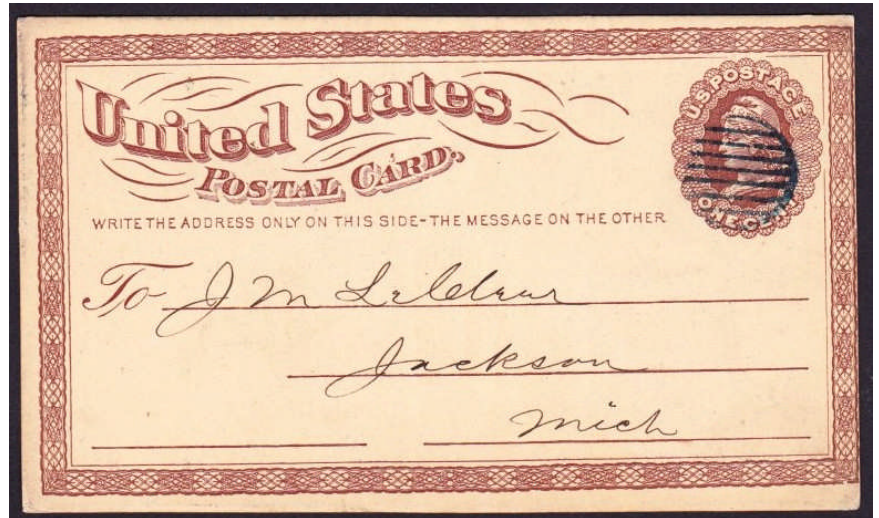 United States
POSTAL CARD.
U.S. POSTAGE
ONE CENT
WRITE THE ADDRESS ONLY ON THIS SIDE-THE MESSAGE ON THE OTHER
To J M
Jackson
Mich